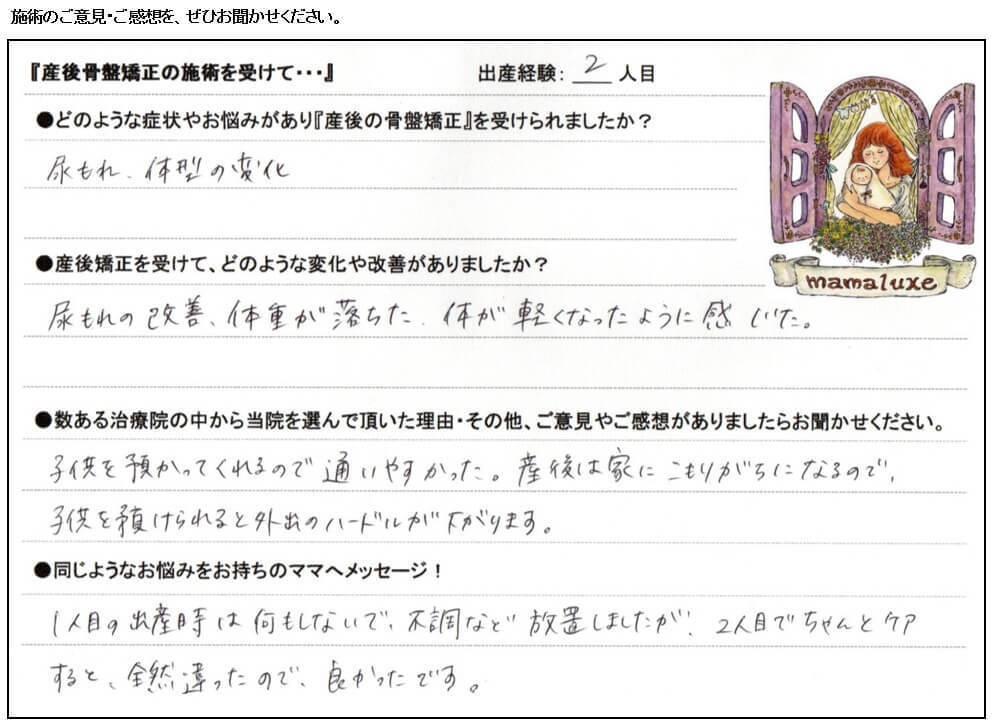 施術のご意見・ご感想を、ぜひお聞かせください。
『産後骨盤矯正の施術を受けて・・・』 出産経験: 2 人目
●どのような症状やお悩みがあり『産後の骨盤矯正』を受けられましたか？
尿もれ、体型の変化
●産後矯正を受けて、どのような変化や改善がありましたか？
mamaluxe
尿もれの改善、体重が落ちた、体が軽くなったように感じた。
●数ある治療院の中から当院を選んで頂いた理由・その他、ご意見やご感想がありましたらお聞かせください。
子供を預かってくれるので通いやすかった。産後は家にこもりがちになるので、
子供を預けられると外出のハードルが下がります。
●同じようなお悩みをお持ちのママへメッセージ！
1人目の出産時は何もしないで、不調など放置しましたが、2人目でちゃんとケア
すると、全然違ったので、良かったです。